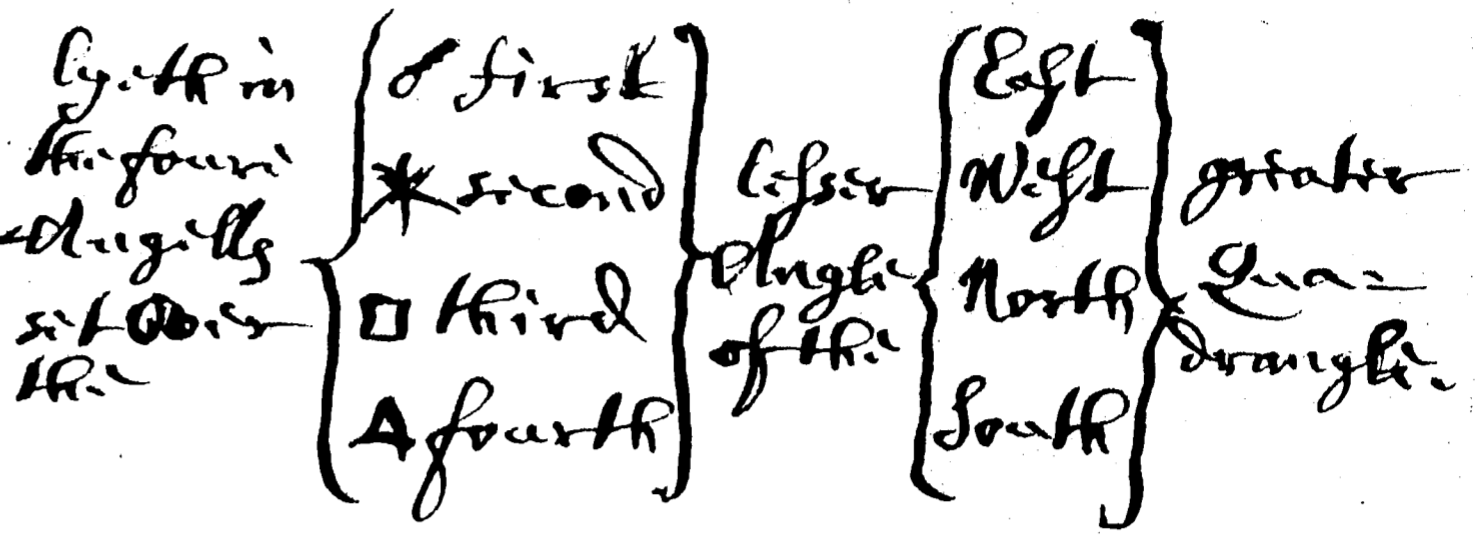 lyeth in
the foure
Angells
set Over
the
☌ first
✶ second
□ third
△ fourth
lesser
Angle
of the
East
West
North
South
greater
Qua=
drangle.